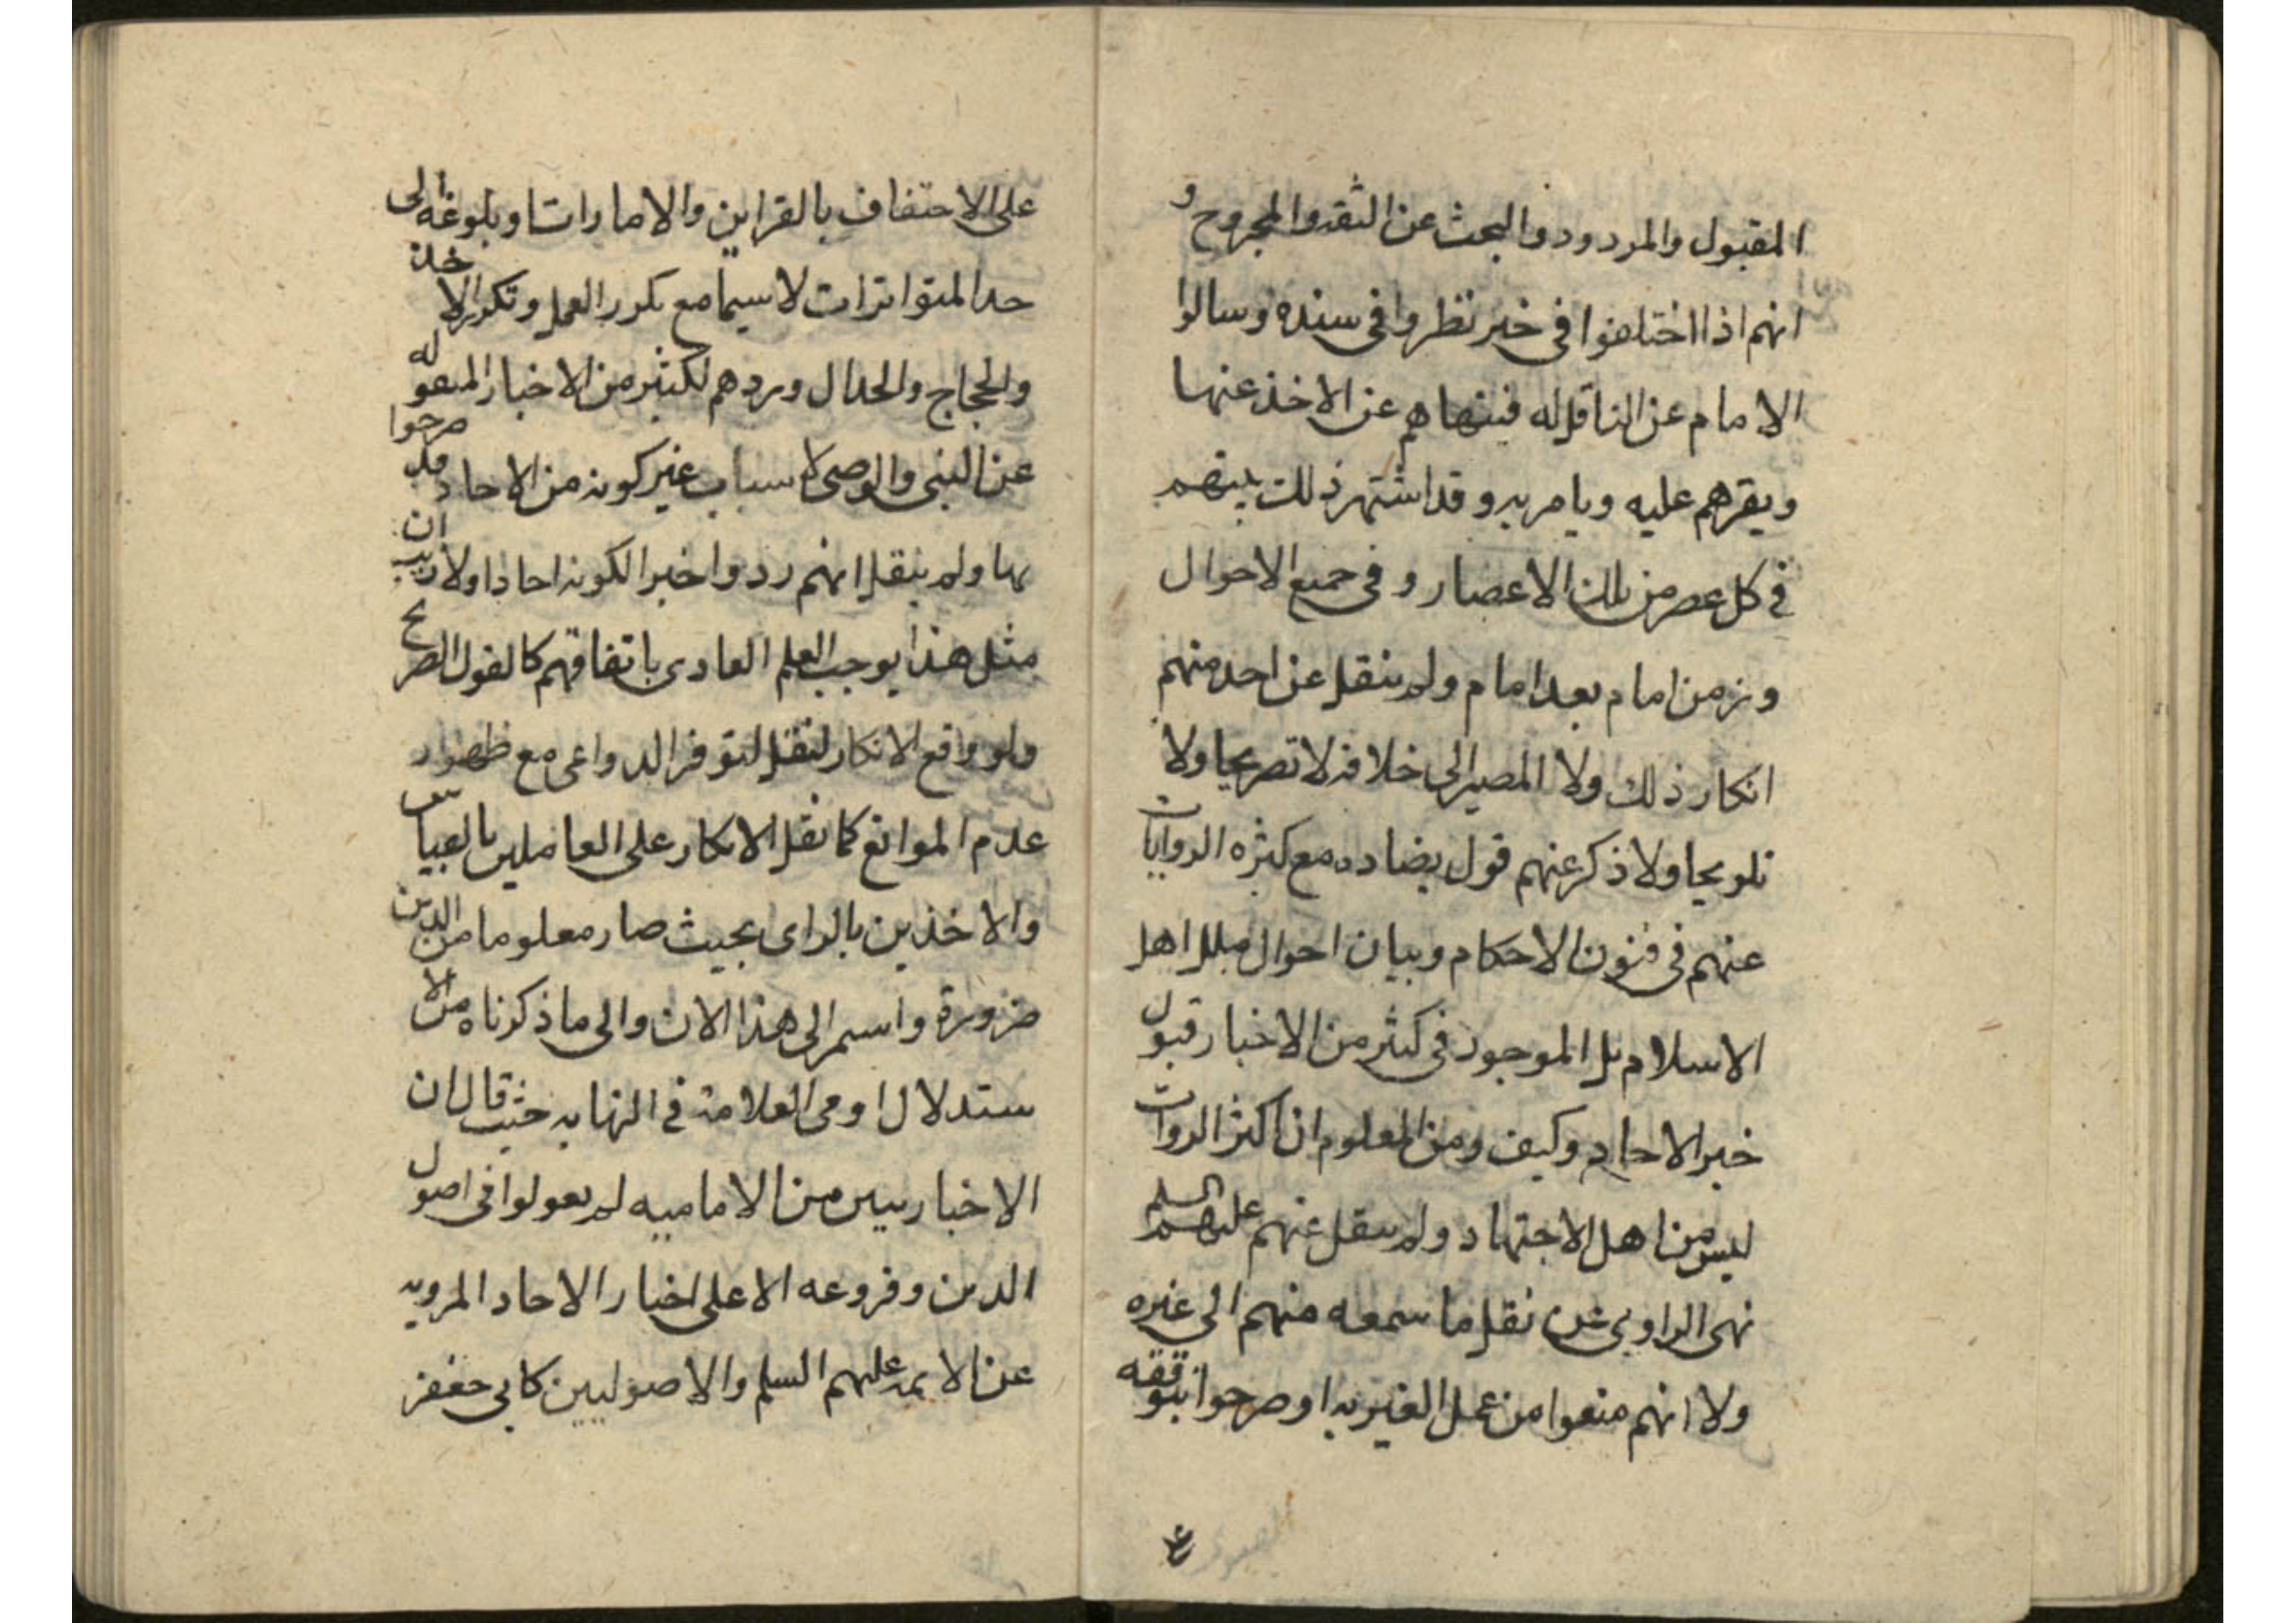 المقبول والمردود والبحث عن الثقه والمجروح و
انهم اذا اختلفوا فى خبر نظروا فى سنده وسالوا
الامام عن الناقل له فينهاهم عن الاخذ عنها
ويقرهم عليه ويامر به وقد اشتهر ذلك بينهم
فى كل عصر من تلك الاعصار و فى جميع الاحوال
وزمن امام بعد امام ولم ينقل عن احد منهم
انكار ذلك ولا المصير الى خلافه لا تصريحا ولا
تلويحا ولا ذكر عنهم قول يضاده مع كثره الروايات
عنهم فى فنون الاحكام وبيان احوال ملل اهل
الاسلام بل الموجود فى كثير من الاخبار قبول
خبر الاحاد وكيف ومن المعلوم ان اكثر الروات
ليس من اهل الاجتهاد ولم ينقل عنهم عليهم السلم
نهى الراوى عن نقل ما سمعه منهم الى غيره
ولا انهم منعوا من عمل الغير به او صرحوا بتوقفه
على الاحتفاف بالقراين والامارات او بلوغه الى
حد المتواترات لا سيما مع تكرر العمل وتكرر الاخذ
والحجاج والجدال وردهم لكثير من الاخبار المنعوله
عن النبى والوصى لاسباب غير كونه من الاحاد قد صرحوا
بها ولم ينقل انهم ردوا خبرا لكونه احادا ولا ريب ان
مثل هذا يوجب العلم العادى باتفاقهم كالقول الصريح
ولو واقع الانكار لنقل لتوفر الدواعى مع ظهور
عدم الموانع كما نقل الانكار على العاملين بالقياس
والاخذين بالراى بحيث صار معلوما من الدين
ضرورة واستمر الى هذا الان والى ما ذكرناه من الا
ستدلال اومى العلامة فى النهايه حيث قال ان
الاخباريين من الاماميه لم يعولوا فى اصول
الدين وفروعه الا على اخبار الاحاد المرويه
عن الائمه عليهم السلم والاصوليين كابى جعفر